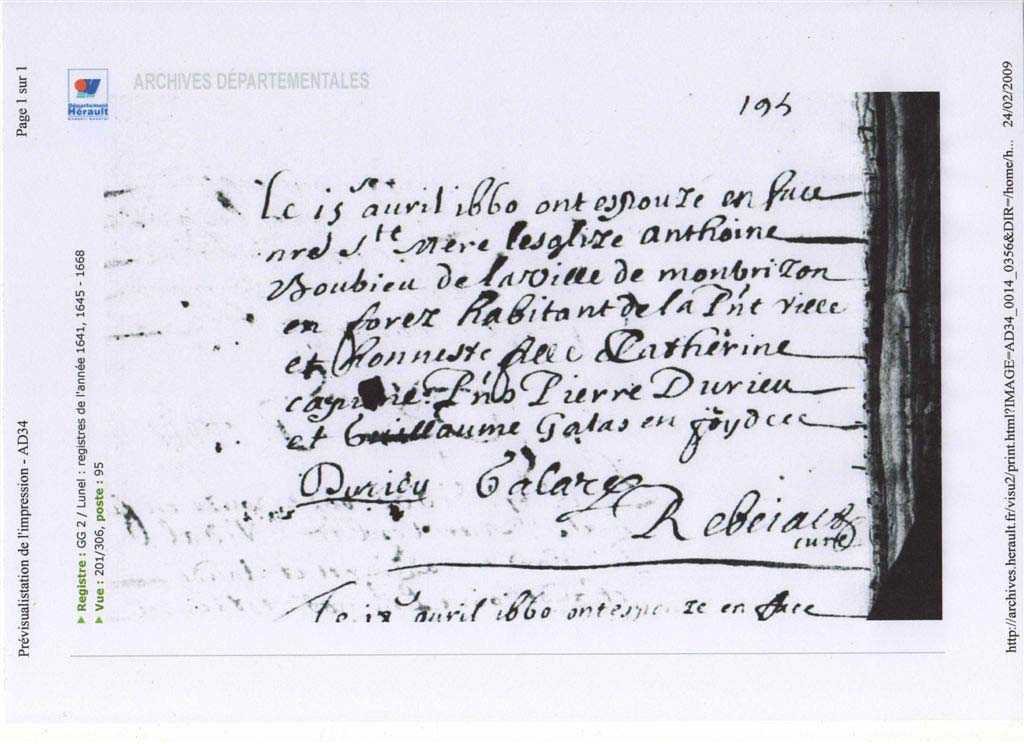 Page 1 sur 1
Prévisualistation de l'impression - AD34
Département
Hérault
ARCHIVES DÉPARTEMENTALES
► Registre : GG 2 / Lunel : registres de l'année 1641, 1645 - 1668
► Vue : 201/306, poste : 95
195
Le 15 avril 1660 ont espouze en face
nre Ste Mere lesglize Anthoine
Boubieu de la ville de monbrizon
en forez habitant de la Pnt ville
et honneste fille Catherine
Pnts Pierre Durieu
et Guillaume Galas en foy de ce
Durieu Galaze
curé
Le avril 1660 ont espouze en face
http://archives.herault.fr/visu2/print.html?IMAGE=AD34_0014_0356&DIR=/home/h... 24/02/2009